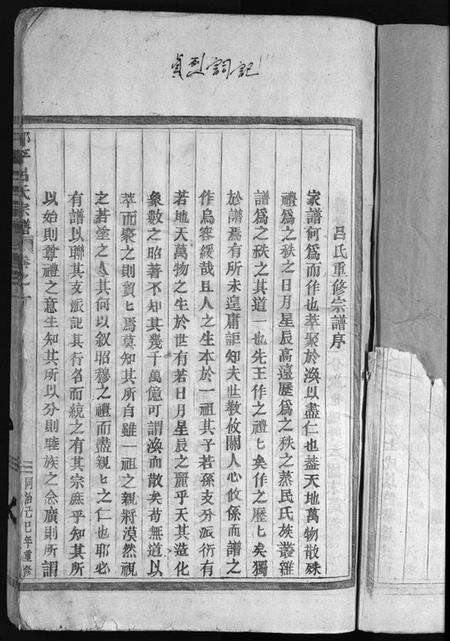 貞烈詞記
呂氏重修宗譜序
家譜何爲而作也萃聚於渙以盡仁也葢天地萬物散殊
禮爲之秩之日月星辰高遠歷爲之秩之蒸民氏族叢雜
譜爲之秩之其道一也先王作之禮匕矣作之歷匕矣獨
於譜焉有所未遑庸詎知夫世敎攸關人心攸係而譜之
作烏容緩哉且人之生本於一祖其子若孫支分派衍有
若地天萬物之生於世有若日月星辰之麗乎天其造化
象數之昭著不知其幾千萬億可謂渙而散矣苟無道以
萃而聚之則貿匕焉莫知其所自雖一祖之親將漠然視
之若塗之人其何以叙昭穆之禮而盡親匕之仁也耶必
有譜以聯其支派記其行名而統之有其宗庶乎知其所
以始則尊禮之意生知其所以分則睦族之念廣則所謂
呂氏宗譜
同治己巳年重修